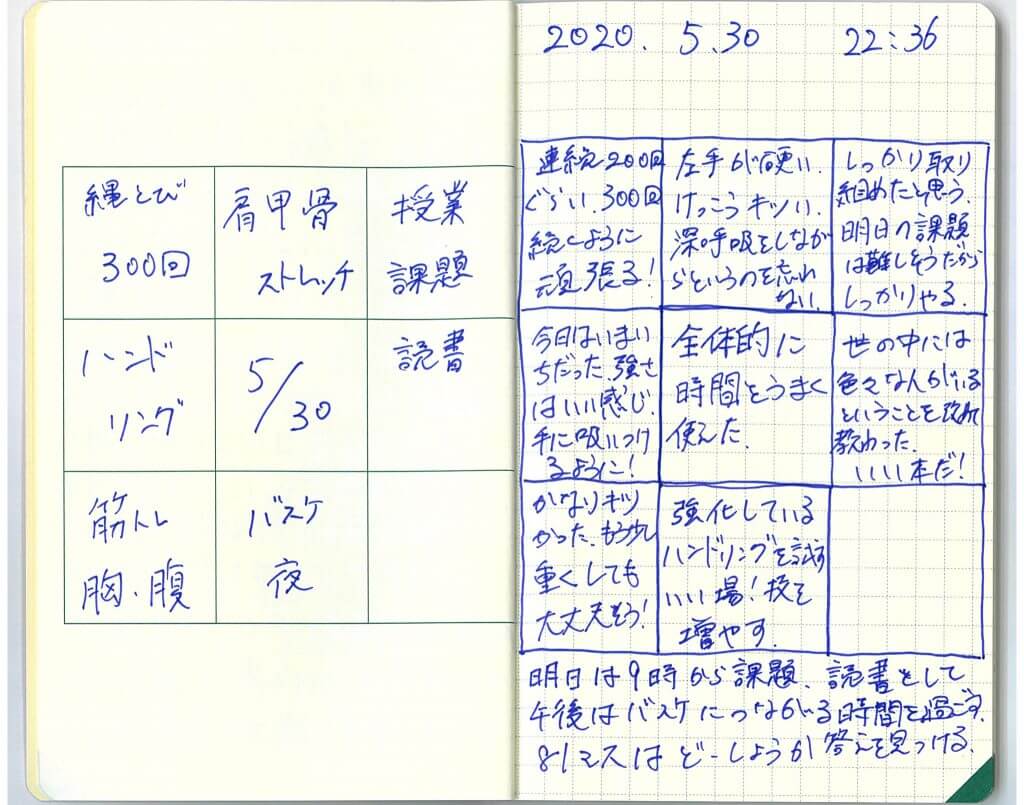 縄とび
300回
肩甲骨
ストレッチ
授業
課題
ハンド
リング
5/30
読書
筋トレ
胸・腹
バスケ
夜
2020. 5.30 22:36
連続200回
ぐらい.300回
続くように
頑張る!
左手が硬い.
けっこうキツい.
深呼吸をしなが
らというのを忘れ
ない.
しっかり取り
組めたと思う.
明日の課題
は難しそうだから
しっかりやる.
今日はいまい
ちだった.強さ
はいい感じ.
手に吸いつけ
るように!
全体的に
時間をうまく
使えた.
世の中には
色々なんがいる
ということを改めて
教わった.
いいい本だ!
かなりキツ
かった.もう少し
重くしても
大丈夫そう!
強化している
ハンドリングを試す
いい場!技を
増やす.
明日は9時から課題、読書をして
午後はバスケにつながる時間を過ごす.
81マスはどーしようか答えを見つける.